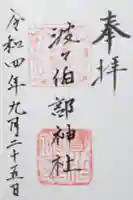 奉拝
波々伯部神社
令和四年九月二十五日